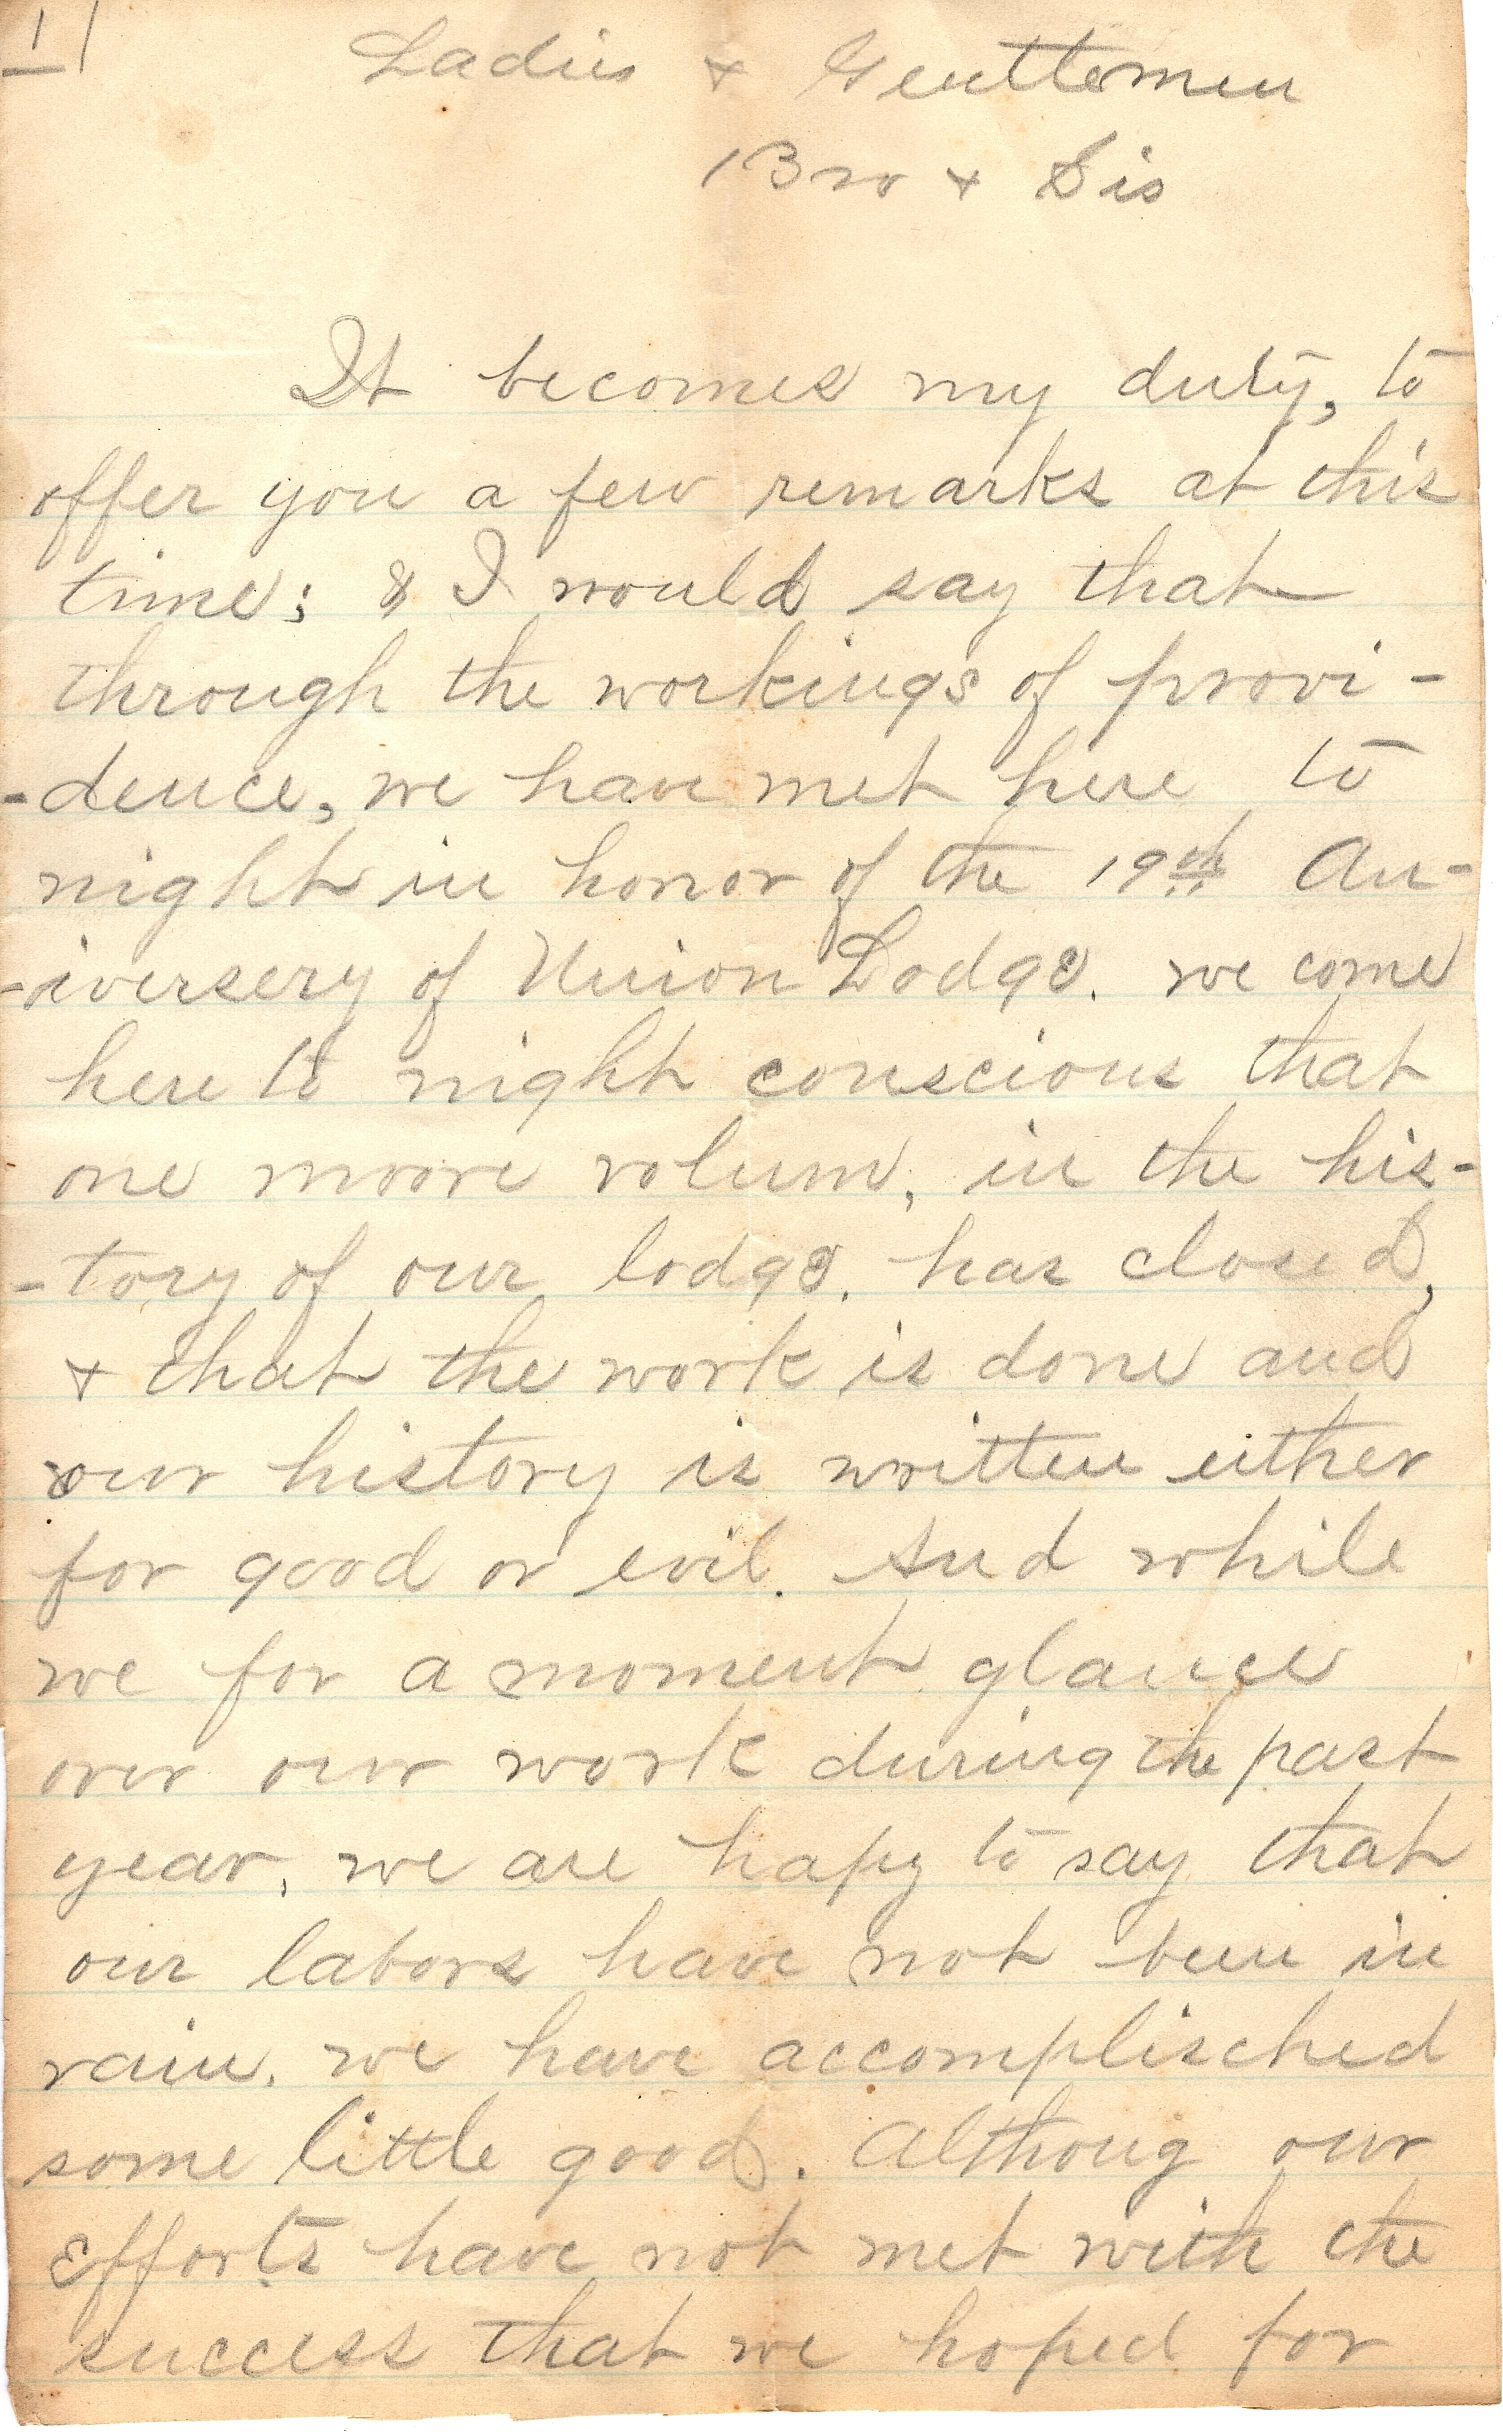 1
Ladies & Gentlemen
Bro & Sis
It becomes my duty, to
offer you a few remarks at this
time; & I would say that
through the workings of provi-
-dence, we have met here to
night in honor of the 19th An-
-iversery of Union Lodge. we come
here to night conscious that
one moore volum, in the his-
-tory of our lodge. has closed,
& that the work is done and
our history is written either
for good or evil. And while
we for a moment glance
over our work during the past
year, we are hapy to say that
our labors have not been in
vain. we have accomplisched
some little good. Althoug our
Efforts have not met with the
success that we hoped for